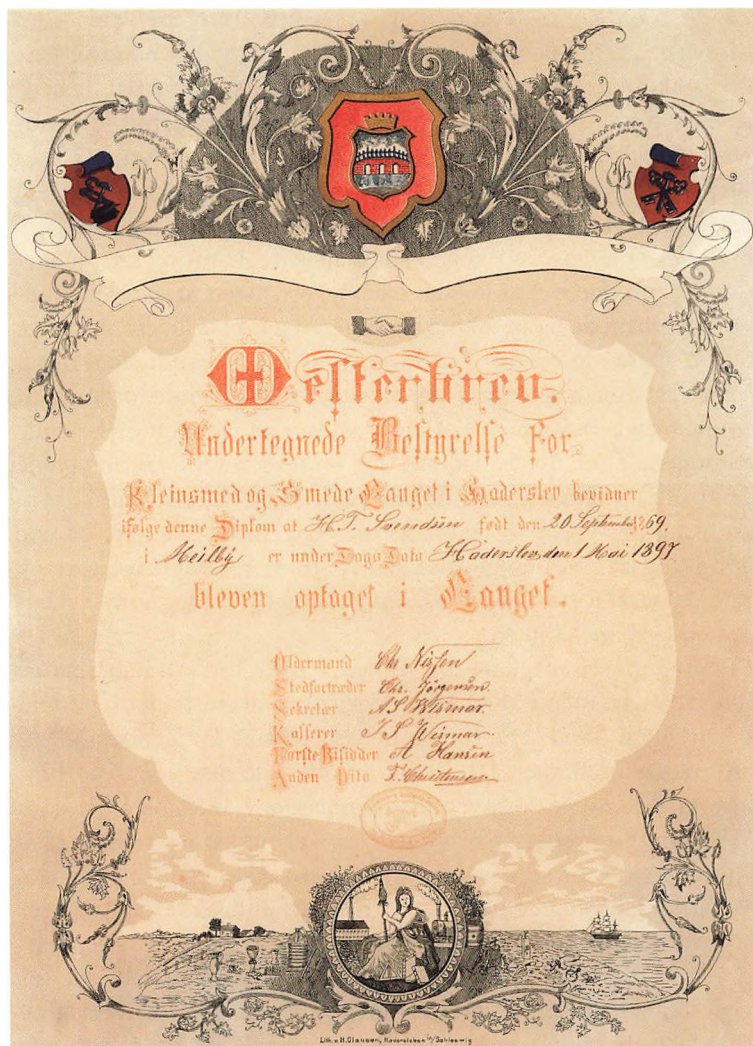 Mesterbrev.
Undertegnede Bestyrelse For
Kleinsmed og Smede Lauget i Haderslev bevidner
ifølge denne Diplom at H. T. Svendsen født den 20 September 1869.
i Meilby er under Dags Dato Haderslev, den 1 Mai 1897
bleven optaget i Lauget.
Oldermand Chr Nissen
Stedfortræder Chr. Jörgensen.
Sekretær A. S. Wismar.
Kasserer J S Weimar
Første Bisidder A Hansen
Anden Dito F. Christensen
Lith. v. H. Clausen, Hadersleben i/Schleswig